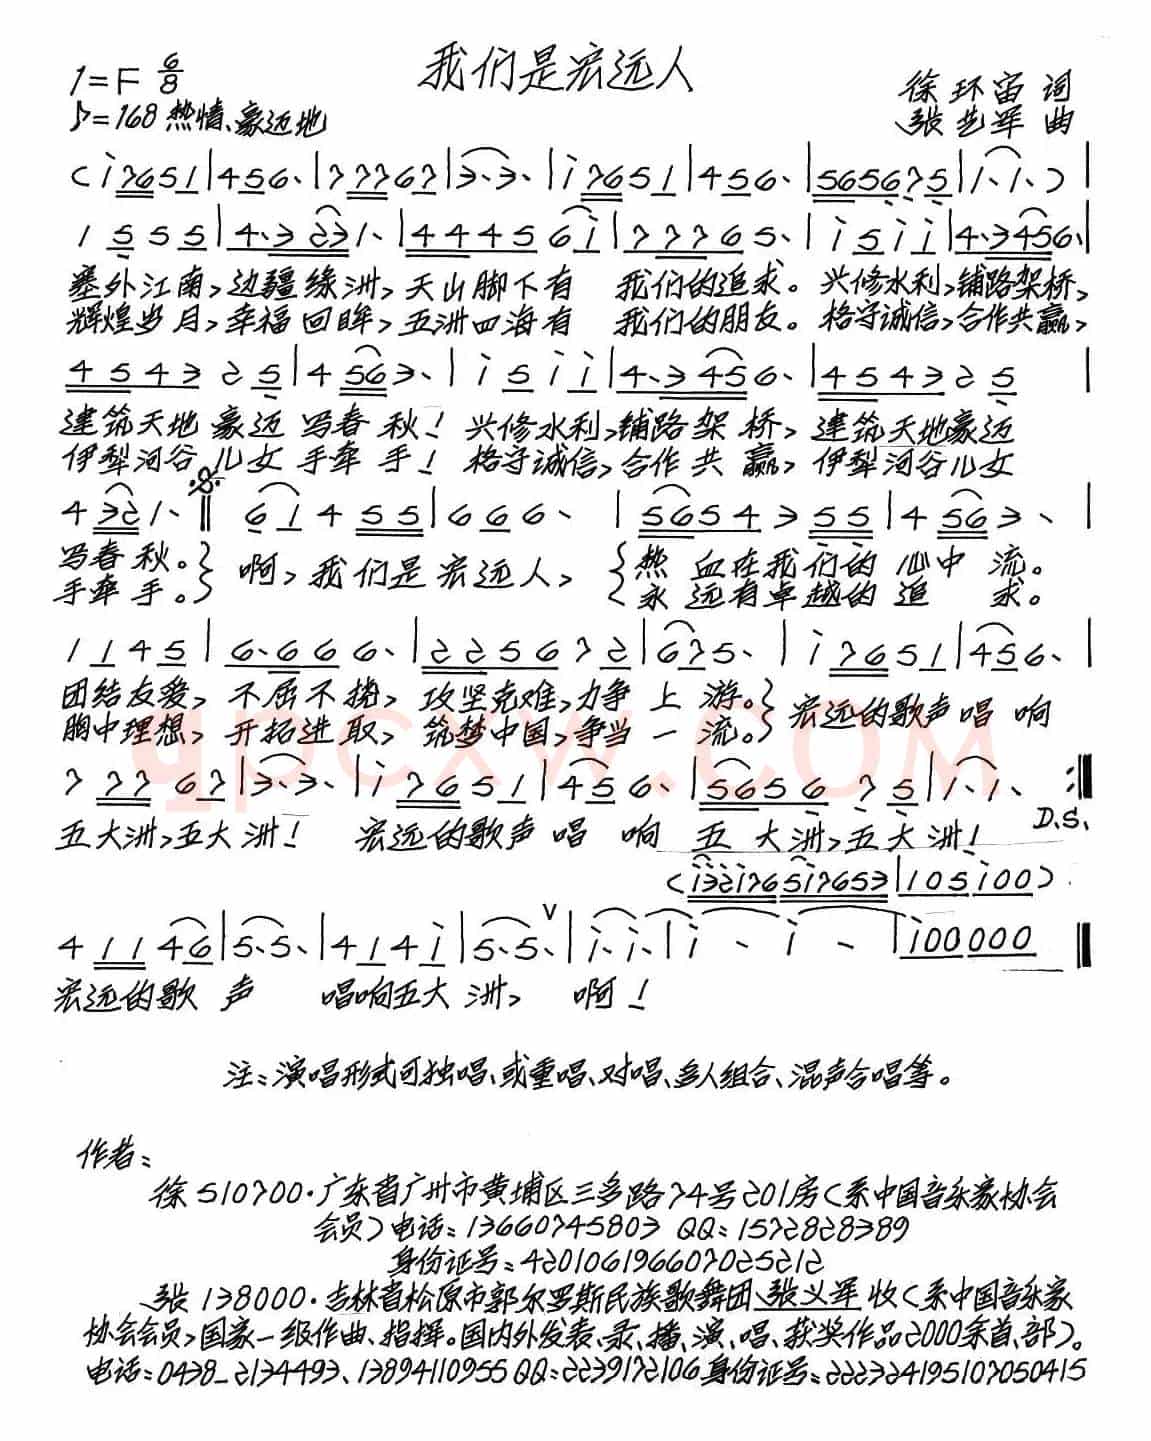 我们是宏远人
1=F 6/8
♪=168 热情、豪迈地
徐环宙 词
张艺军 曲
(i 7651|456·|77767|3·3·|i 7651|456·|565675|1·1·)|
1 5 5 5|4·3 231·|4445 6i|77765·|i 5 i i|4·3456·|
塞外江南,边疆绿洲,天山脚下有 我们的追求。兴修水利,铺路架桥,
辉煌岁月,幸福回眸,五洲四海有 我们的朋友。恪守诚信,合作共赢,
4543 2 5|4 563·|i 5 i i|4·3 456·|4543 2 5|
建筑天地 豪迈 写春 秋!兴修水利,铺路架 桥,建筑天地豪迈
伊犁河谷 儿女 手牵 手!恪守诚信,合作共 赢,伊犁河谷儿女
4 321·‖ 6 1 4 55|6 6 6·|5654 3 55|4 563·|
写春 秋。} 啊,我们是 宏远人,{热 血在我们的 心中 流。
手牵 手。} {永 远有卓越的 追 求。
1 1 4 5|6·666·|2256 7 2|675·|i 7651|456·|
团结友爱,不屈不挠,攻坚克难,力争 上 游。} 宏远的歌声唱 响
胸中理想,开拓进取,筑梦中国,争当 一 流。}
7 77 67|3·3·|i 7651|456·|5656 7 5|1·1·:‖
D.S.
五大洲,五大洲! 宏远的歌声 唱 响 五 大洲,五大 洲!
(i32i76517653|105i00)
4 11 46|5·5·|414i|5·5·|i·i·|i - i -|i00000‖
宏远的歌 声 唱响五大 洲, 啊!
注:演唱形式可独唱、或重唱、对唱、多人组合、混声合唱等。
作者:
徐 510700·广东省广州市黄埔区三多路74号201房(系中国音乐家协会
会员)电话:13660745803 QQ:1572828389
身份证号:420106196607025212
张 138000·吉林省松原市郭尔罗斯民族歌舞团 张义军 收(系中国音乐家
协会会员,国家一级作曲、指挥。国内外发表、录、播、演、唱、获奖作品2000余首、部)。
电话:0438_2134493、13894110955 QQ:2239172106 身份证号:222324195107050415
qpcxw.com